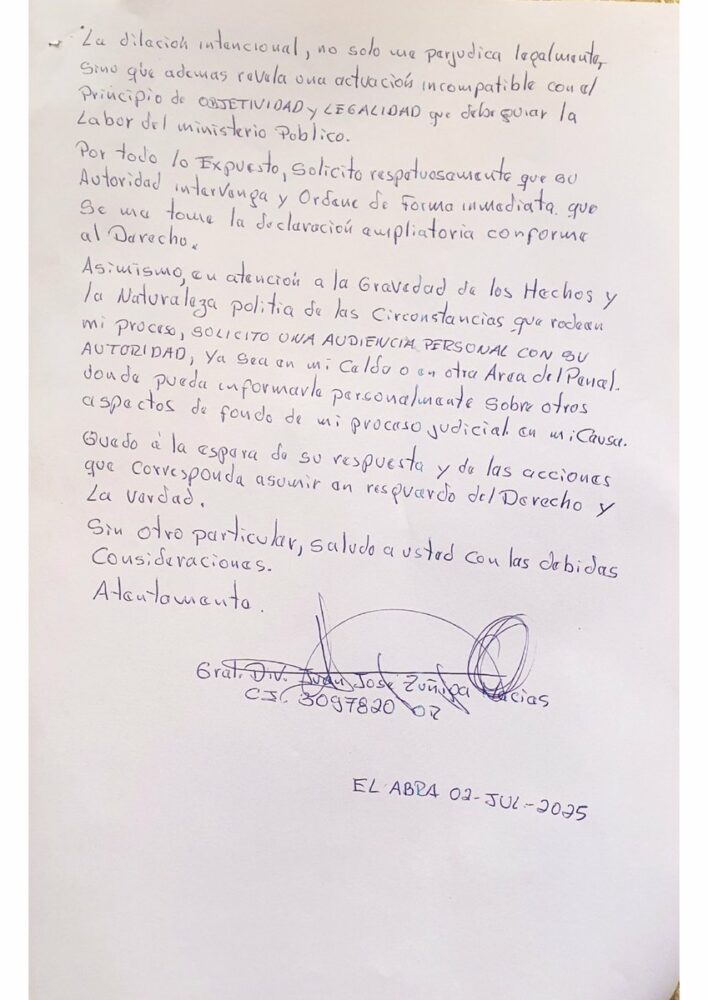 La dilación intencional, no solo me perjudica legalmente,
Sino que ademas revela una actuación incompatible con el
Principio de OBJETIVIDAD y LEGALIDAD que debe guiar la
Labor del ministerio Público.
Por todo lo Expuesto, Solicito respetuosamente que su
Autoridad intervenga y Ordene de forma inmediata que
Se me tome la declaración ampliatoria conforme
al Derecho.
Asimismo, en atención a la Gravedad de los Hechos y
la Naturaleza politia de las Circunstancias que rodean
mi proceso, SOLICITO UNA AUDIENCIA PERSONAL CON SU
AUTORIDAD, Ya Sea en mi Celda o en otra Area del Penal.
donde pueda informarle personalmente Sobre otros
aspectos de fondo de mi proceso judicial en mi Causa.
Quedo a la espera de su respuesta y de las acciones
que corresponda asumir en resguardo del Derecho y
La verdad.
Sin otro particular, saludo a usted con las debidas
Consideraciones.
Atentamente.
Gral. Div. Juan José Zuñiga Macias
C.I. 3097820 OR
EL ABRA 02-JUL-2025